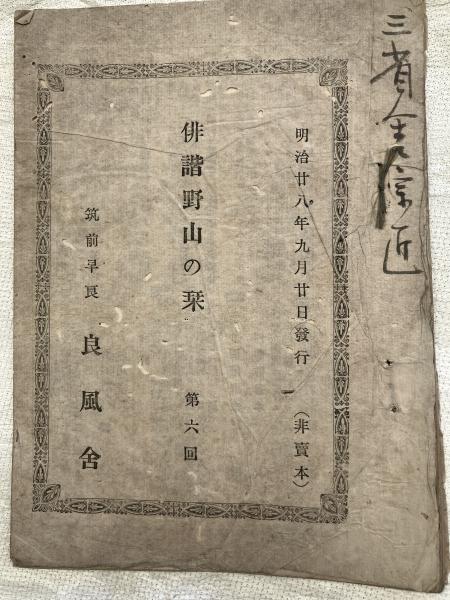 三省舎
明治廿八年九月廿日發行 （非賣本）
俳諧野山の栞 第六回
筑前早良 良風舍